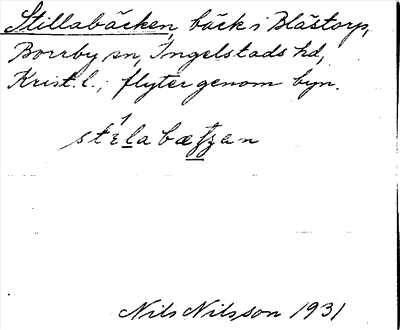 Stillabäcken, bäck i Blästorp,
Borrby sn, Ingelstads hd,
Krist. l.; flyter genom byn.
Nils Nilsson 1931